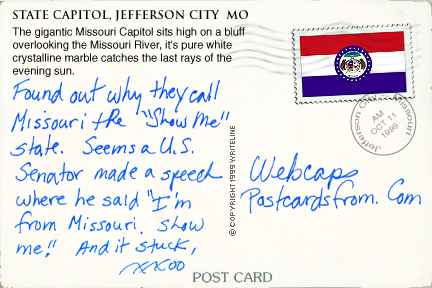 STATE CAPITOL, JEFFERSON CITY MO
The gigantic Missouri Capitol sits high on a bluff
overlooking the Missouri River, it's pure white
crystalline marble catches the last rays of the
evening sun.
Found out why they call
Missouri the "Show Me"
state. Seems a U.S.
Senator made a speech
where he said "I'm
from Missouri. Show
me." And it stuck,
xxoo
© COPYRIGHT 1999 WRITELINE
Jefferson City, Missouri
AM
OCT 11
1999
Webcaps
Postcardsfrom. Com
POST CARD